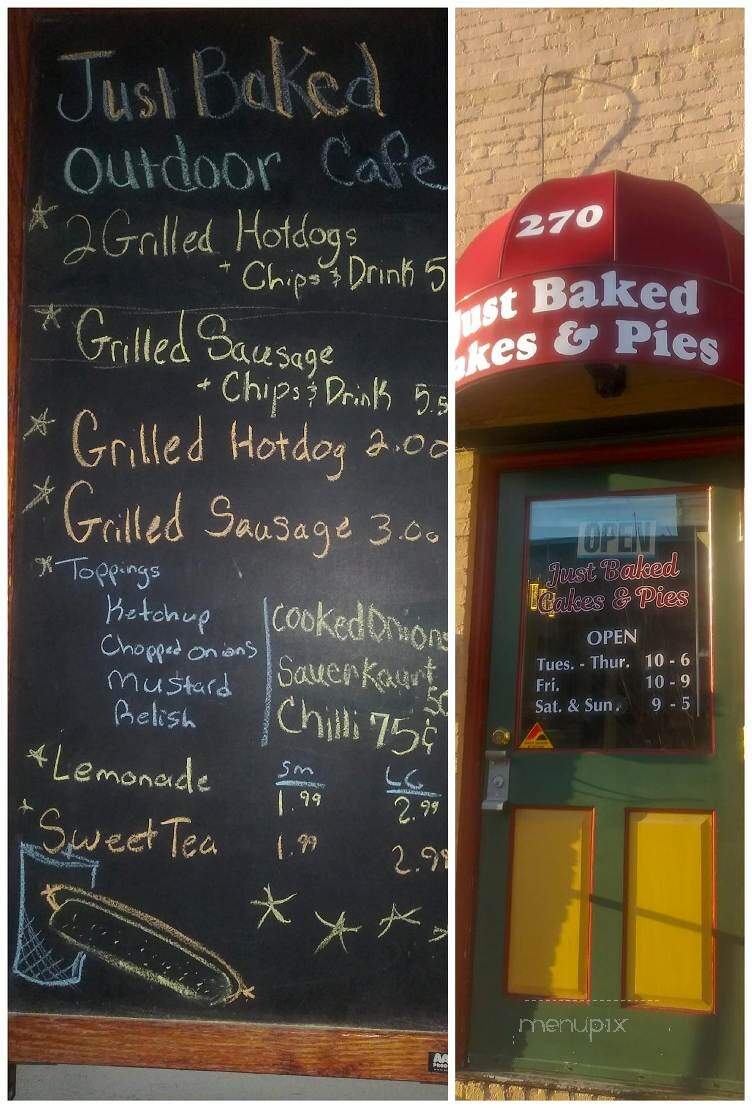 Just Baked
Outdoor Cafe
2 Grilled Hotdogs
+ Chips & Drink 5
Grilled Sausage
+ Chips & Drink 5.5
Grilled Hotdog 2.00
Grilled Sausage 3.00
Toppings
Ketchup
Chopped onions
Mustard
Relish
Cooked Onions
Sauerkaurt
50
Chilli 75¢
Sm LG
Lemonade 1.99 2.99
Sweet Tea 1.99 2.99
270
Just Baked
akes & Pies
OPEN
Just Baked
Cakes & Pies
OPEN
Tues. - Thur. 10 - 6
Fri. 10 - 9
Sat. & Sun. 9 - 5
menupix